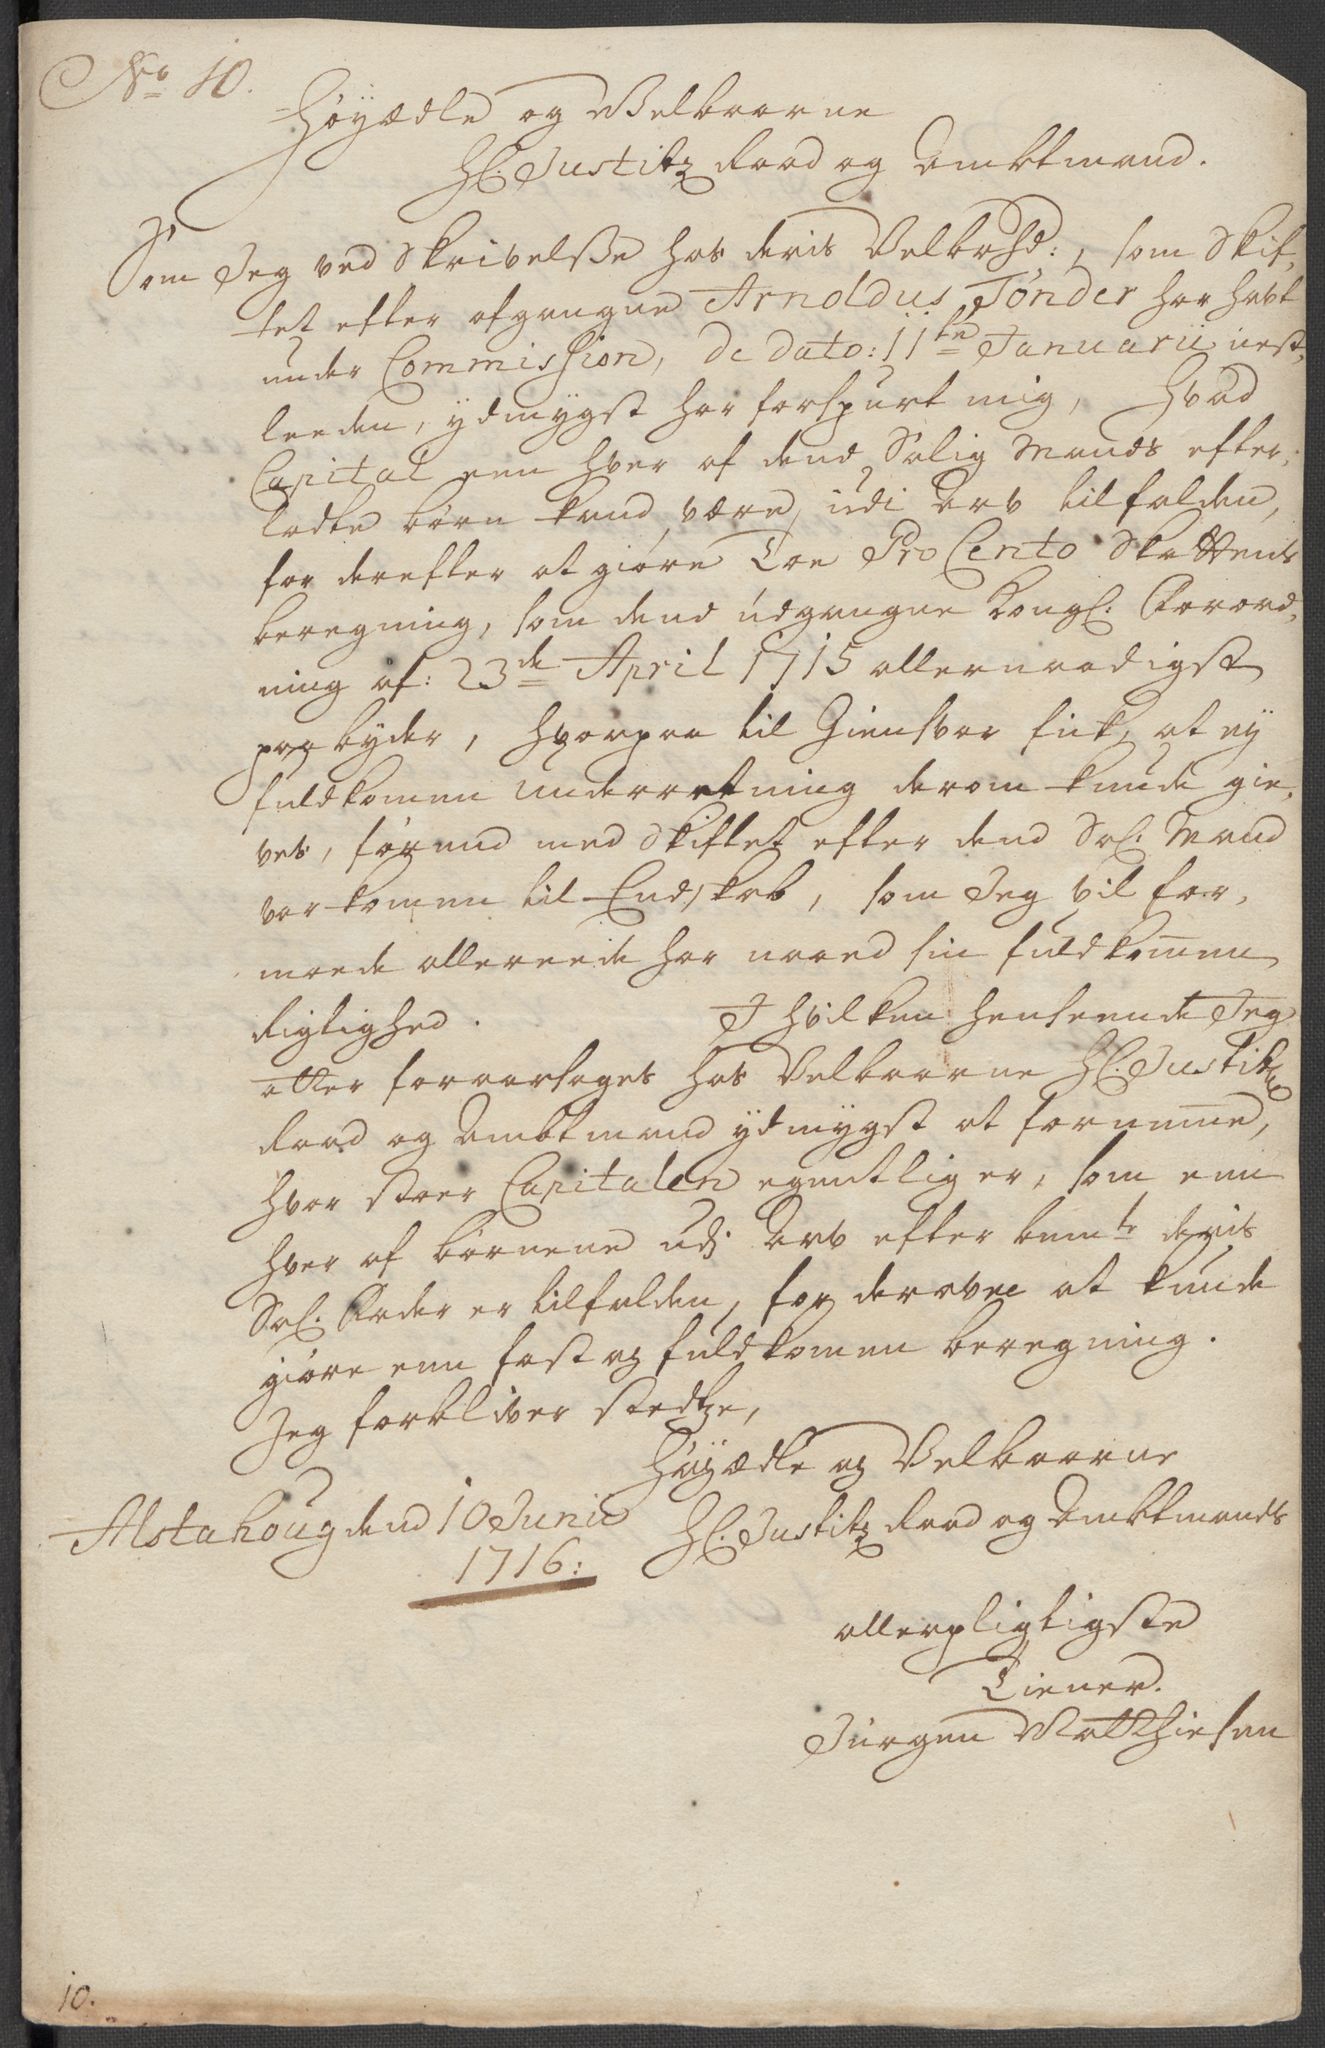 No 10.
Höyædle og Velbaarne
Hl. Justitz Raad og Ambtmand.
Som Jeg ved Skrivelsse hos deris Velbrhd:, som Skif,
tet efter afgangne Arnoldus Tönder har haft
under Commission, de dato: 11te Januarii nest,
leeden, ydmygst har forspurt mig, hvad
Capital een hver af dend Salig Mands efter,
ladte börn kand være udi Arv tilfalden,
for derefter at giöre Toe Pro Cento Skattens
beregning, som dend udgangne Kongl. Forord,
ning af: 23de April 1715 allernaadigst
paabyder, hvorpaa til Giensvar fick, at ey
fuldkomen underretning derom kunde gie,
ves, förend med Skiftet efter dend Sal. Mand
var komen til Endskab, som Jeg vil for,
moede allereede har naaed sin fuldkomen
Rigtighed. I hvilken henseende Jeg
atter foraarsages hos Velbaarne Hl. Justitz
Raad og Ambtmand ydmygst at fornemme,
hvor stoer Capitalen egentlig er, som een
hver af börnene udj Arv efter bemte deris
Sal. Fader er tilfalden, for derover at kunde
giöre een fast og fuldkomen beregning.
Jeg forbliver stedtze,
Höyædle og Velbaarne
Alstahoug dend 10 Junii Hl. Justitz Raad og Ambtmands
1716:
allerpligtigste
Tiener.
Jürgen Matthiesen
10.